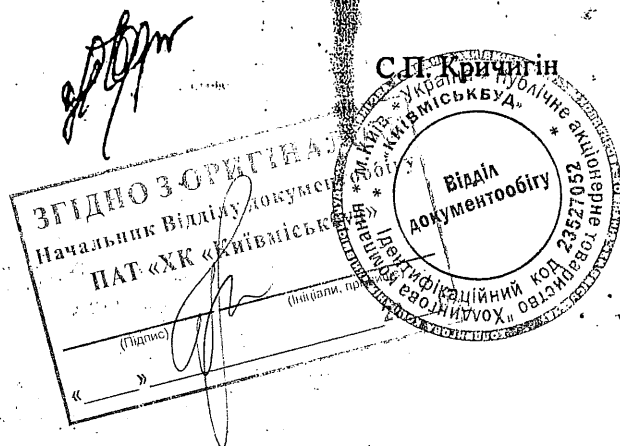 С.П. Кричигін
ЗГІДНО З ОРИГІНАЛ
Начальник Відділу документообігу
ПАТ «ХК «Київміськ
(Підпис)
(Ініціали, пр
«____»
* м.Київ * Україна * Публічне акціонерне товариство "Холдингова компанія
* "КИЇВМІСЬКБУД" *
Ідентифікаційний код 23527052
Відділ
документообігу